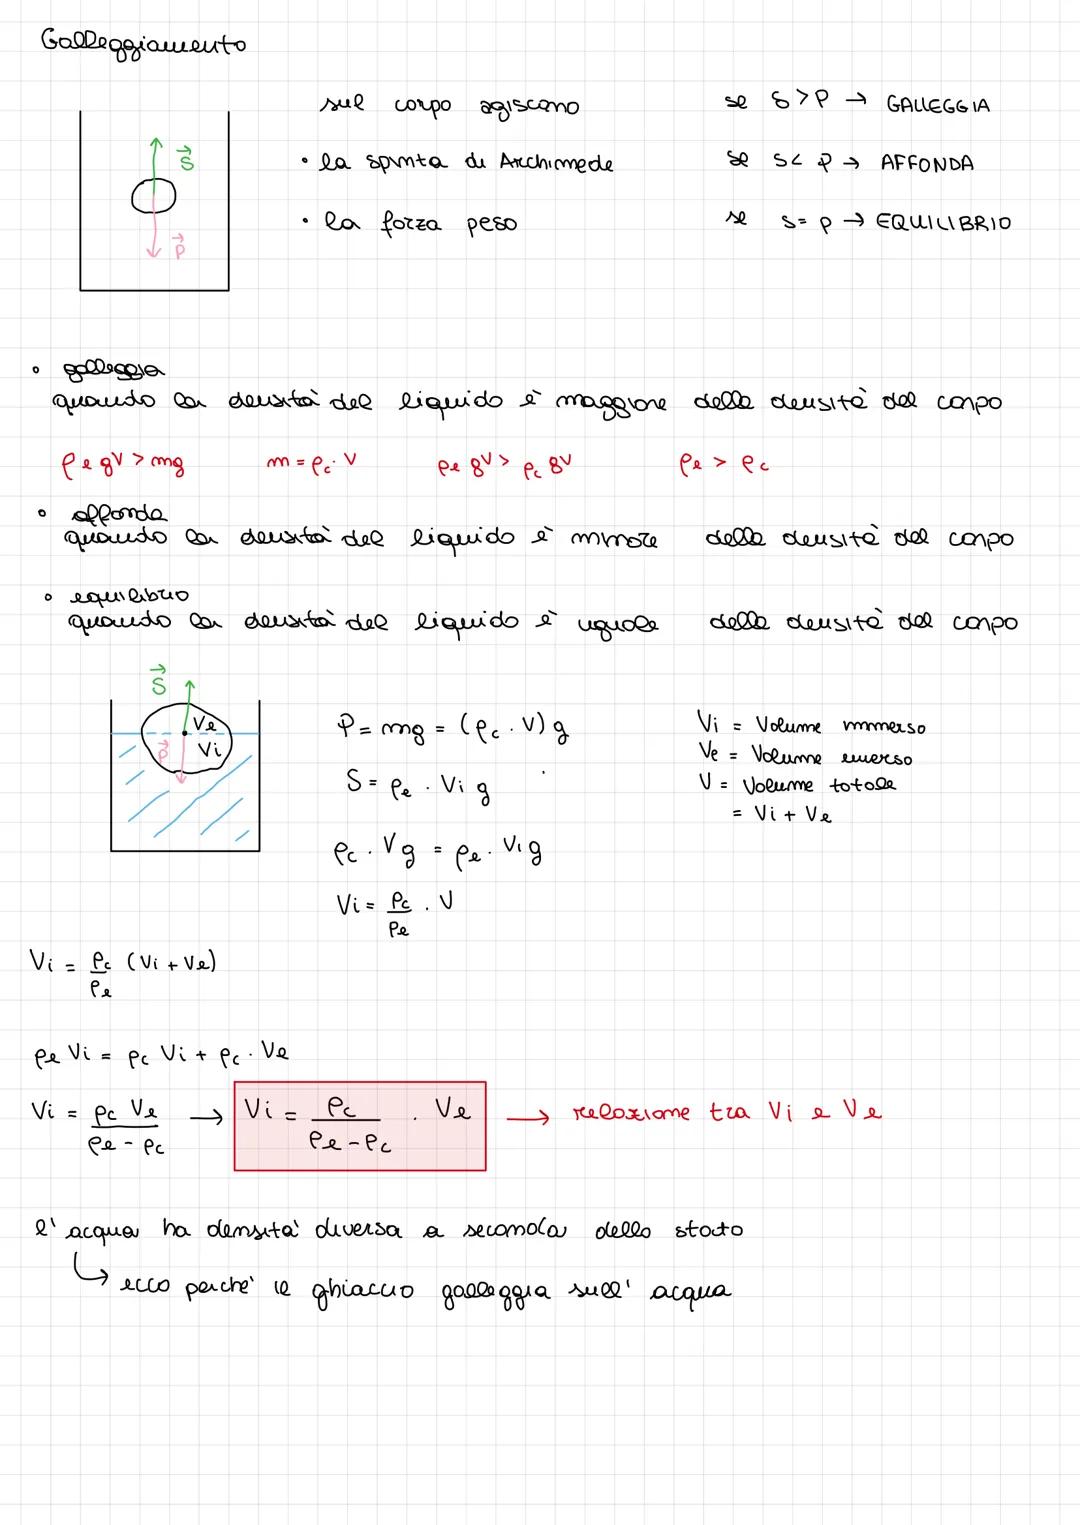 Galleggiamento
sul corpo agiscono
• la spinta di Archimede
• la forza peso
se S>P → GALLEGGIA
se S< P → AFFONDA
se S= P → EQUILIBRIO
S
P
• galleggia
quando la densità del liquido è maggiore della densità del corpo
ρe gV > mg m = ρc · V ρe gV > ρc gV ρe > ρc
• affonda
quando la densità del liquido è minore della densità del corpo
• equilibrio
quando la densità del liquido è uguale della densità del corpo
S
Ve
P Vi
P = mg = (ρc · V) g
S = ρe · Vi g
ρc · Vg = ρe · Vi g
Vi = ρc/ρe · V
Vi = Volume immerso
Ve = Volume emerso
V = Volume totale
= Vi + Ve
Vi = ρc/ρe (Vi + Ve)
ρe Vi = ρc Vi + ρc · Ve
Vi = ρc Ve/ρe - ρc → Vi = ρc/ρe - ρc · Ve → relazione tra Vi e Ve
l' acqua ha densità diversa a seconda dello stato
↳ ecco perchè il ghiaccio galleggia sull' acqua